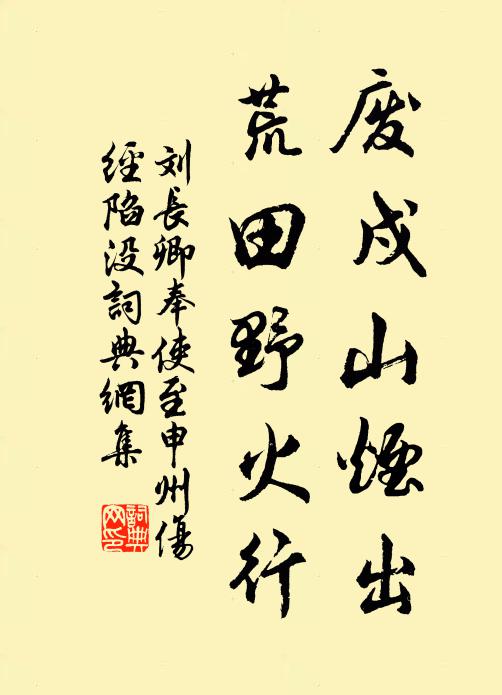 废戍山烟出
荒田野火行
刘長卿奉使至申州傷
經陷没詞典網集
詞典
网印